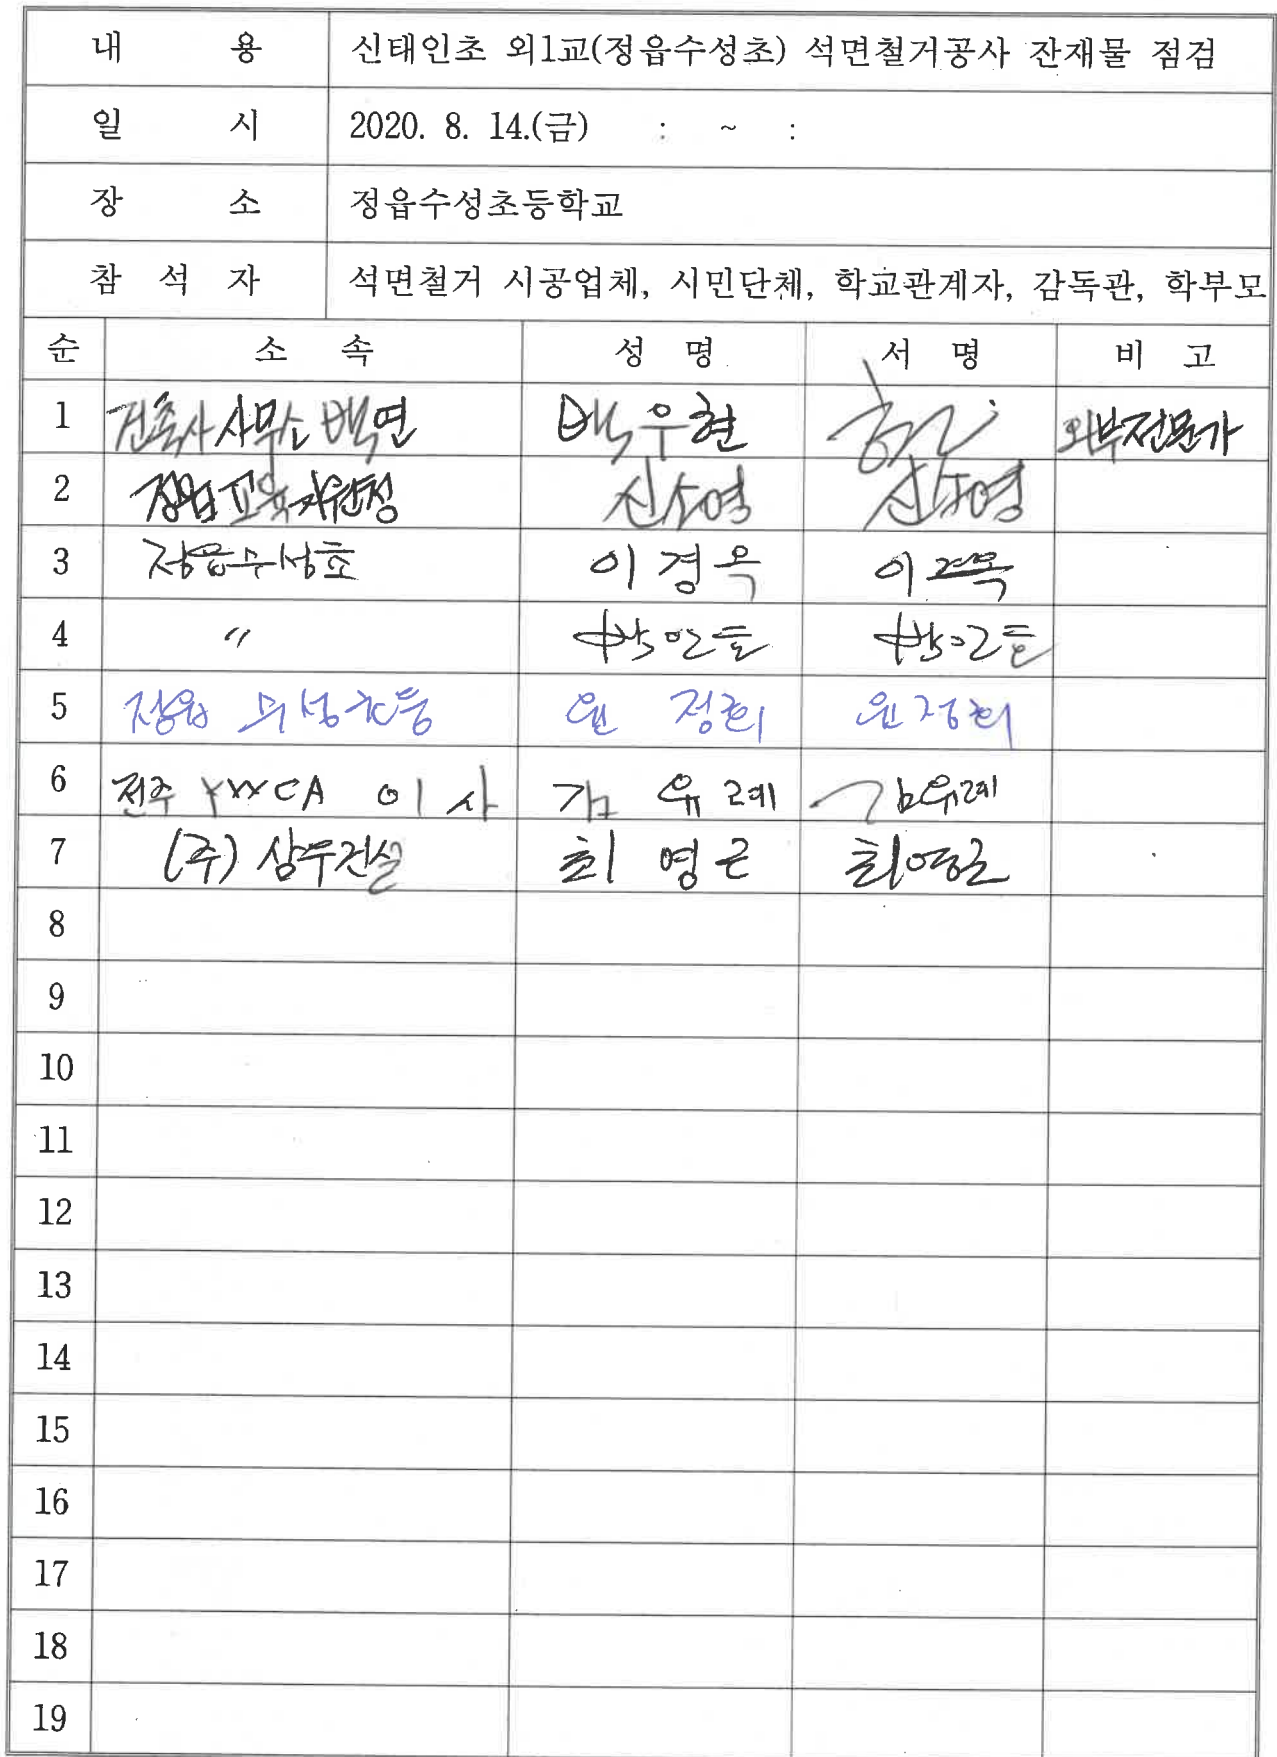 내 용 신태인초 외1교(정읍수성초) 석면철거공사 잔재물 점검
일 시 2020. 8. 14.(금) : ~ :
장 소 정읍수성초등학교
참 석 자 석면철거 시공업체, 시민단체, 학교관계자, 감독관, 학부모
순 소 속 성 명 서 명 비 고
1 건축사사무소 백연 백우현 외부전문가
2 정읍교육지원청 신소영 신소영
3 정읍수성초 이경옥 이경옥
4 〃
5 정읍 수성초등 윤 정희 윤정희
6 전주 YWCA 이사 김 유례 김유례
7 (주) 삼부건설 최영근 최영근
8
9
10
11
12
13
14
15
16
17
18
19